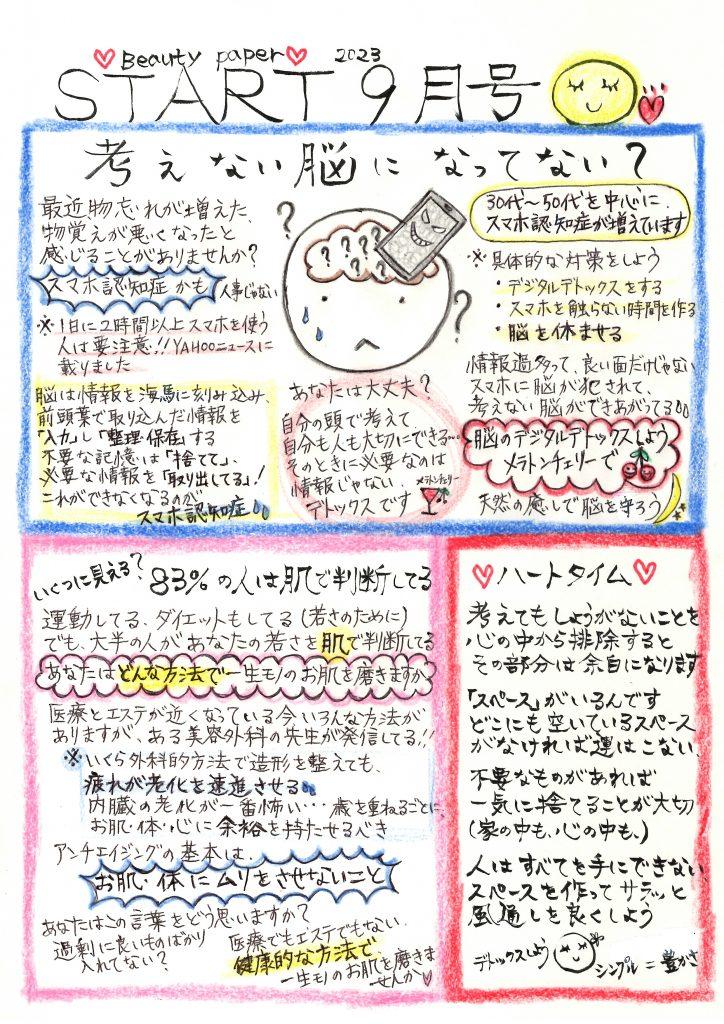 Beauty paper 2023
START 9月号
考えない脳になってない?
最近物忘れが増えた、
物覚えが悪くなったと
感じることがありませんか?
スマホ認知症かも 人事じゃない
※1日に2時間以上スマホを使う
人は要注意!! YAHOOニュースに
載りました
? ? ? ? ? ?
30代~50代を中心に
スマホ認知症が増えています
※具体的な対策をしよう
・デジタルデトックスをする
・スマホを触らない時間を作る
・脳を休ませる
情報過多って、良い面だけじゃない
スマホに脳が犯されて、
考えない脳ができあがってる
脳は情報を海馬に刻み込み、
前頭葉で取り込んだ情報を
「入力」し「整理・保存」する
不要な記憶は「捨てて」、
必要な情報を「取り出してる」!
これができなくなるのが
スマホ認知症
あなたは大丈夫?
自分の頭で考えて
自分も人も大切にできる…
そのときに必要なのは
情報じゃない、
デトックスです
メラトンチェリー
脳のデジタルデトックスしよう
メラトンチェリーで
天然の癒しで脳を守ろう
いくつに見える? 83%の人は肌で判断してる
運動してる、ダイエットもしてる(若さのために)
でも、大半の人があなたの若さを肌で判断してる
あなたはどんな方法で一生モノのお肌を磨きますか
医療とエステが近くなっている今いろんな方法が
ありますが、ある美容外科の先生が発信してる!!
※いくら外科的方法で造形を整えても、
疲れが老化を速進させる
内臓の老化が一番怖い… 歳を重ねるごとに、
お肌・体・心に余裕を持たせるべき
アンチエイジングの基本は、
お肌・体にムリをさせないこと
あなたはこの言葉をどう思いますか?
過剰に良いものばかり
入れてない?
医療でもエステでもない、
健康的な方法で、
一生モノのお肌を磨きま
せんか
ハートタイム
考えてもしょうがないことを
心の中から排除すると
その部分は余白になります
「スペース」がいるんです
どこにも空いているスペース
がなければ運はこない、
不要なものがあれば
一気に捨てることが大切
(家の中も、心の中も、)
人はすべてを手にできない、
スペースを作ってサラッと
風通しを良くしよう
デトックスしよう
シンプル=豊かさ